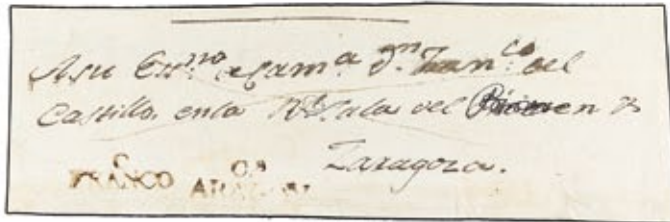 Asu Es.no de Cam.a d.n Fran.co del
Castillo. en la R.l Sala del Crimen de
Zaragoza.
FRANCO ARAGON